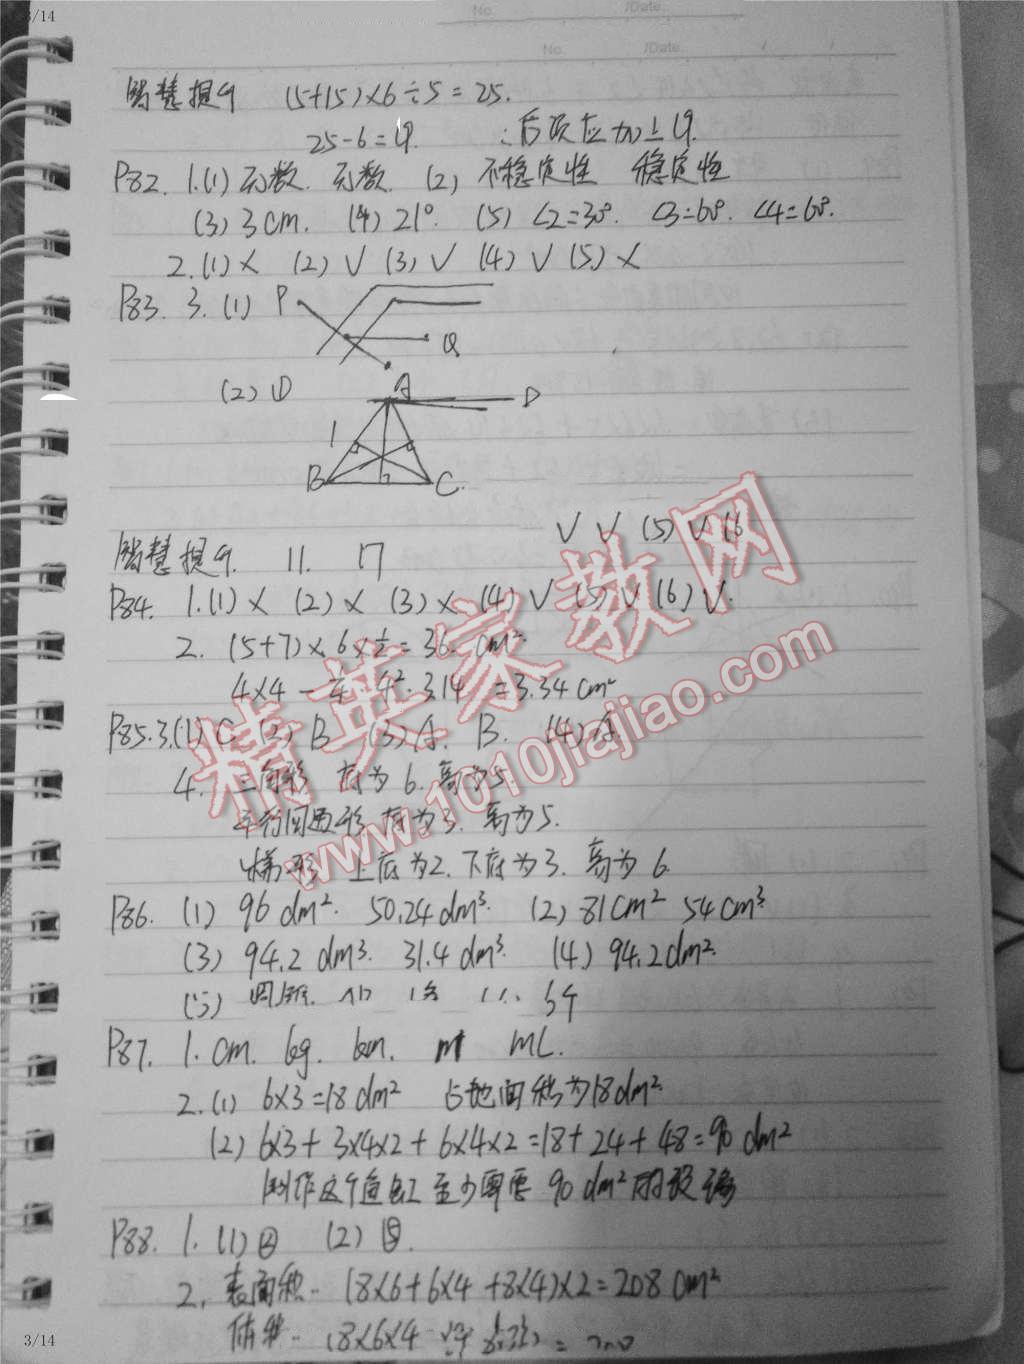 3/14
No. /Date.
No. /Date.
智慧提升 (5+15)×6÷5=25.
25-6=19. ∴后项应加上19.
P82. 1.(1) 无数. 无数. (2) 不稳定性 稳定性
(3) 3cm. (4) 21°. (5) ∠2=30°. ∠3=60°. ∠4=60°.
2.(1) × (2) √ (3) √ (4) √ (5) ×
P83. 3.(1) P
Q
(2) ① A D
1
B C.
√ √ (5) √ (6
智慧提升. 11. 17
P84. 1.(1) × (2) × (3) × (4) √ (5) √ (6) √.
2. (5+7)×6×½=36. cm².
4×4 - 4²·3.14 =3.34cm²
P85.3.(1) C (2) B (3) A. B. (4) A.
4. 三角形 底为6. 高为5.
平行四边形 底为3. 高为5.
梯形 上底为2. 下底为3. 高为6.
P86. (1) 96dm². 50.24dm³. (2) 81cm² 54cm³.
(3) 94.2dm³. 31.4dm³. (4) 94.2dm².
(5) 圆锥.
P87. 1. cm. kg. km. m mL.
2.(1) 6×3=18dm² 占地面积为18dm².
(2) 6×3+3×4×2+6×4×2=18+24+48=90dm²
制作这个鱼缸至少需要90dm²的玻璃
P88. 1. (1) ② (2)
2. 表面积.. (8×6+6×4+8×4)×2=208cm²
体积.. (8×6×4
精英家教网
www.1010jiajiao.com
3/14